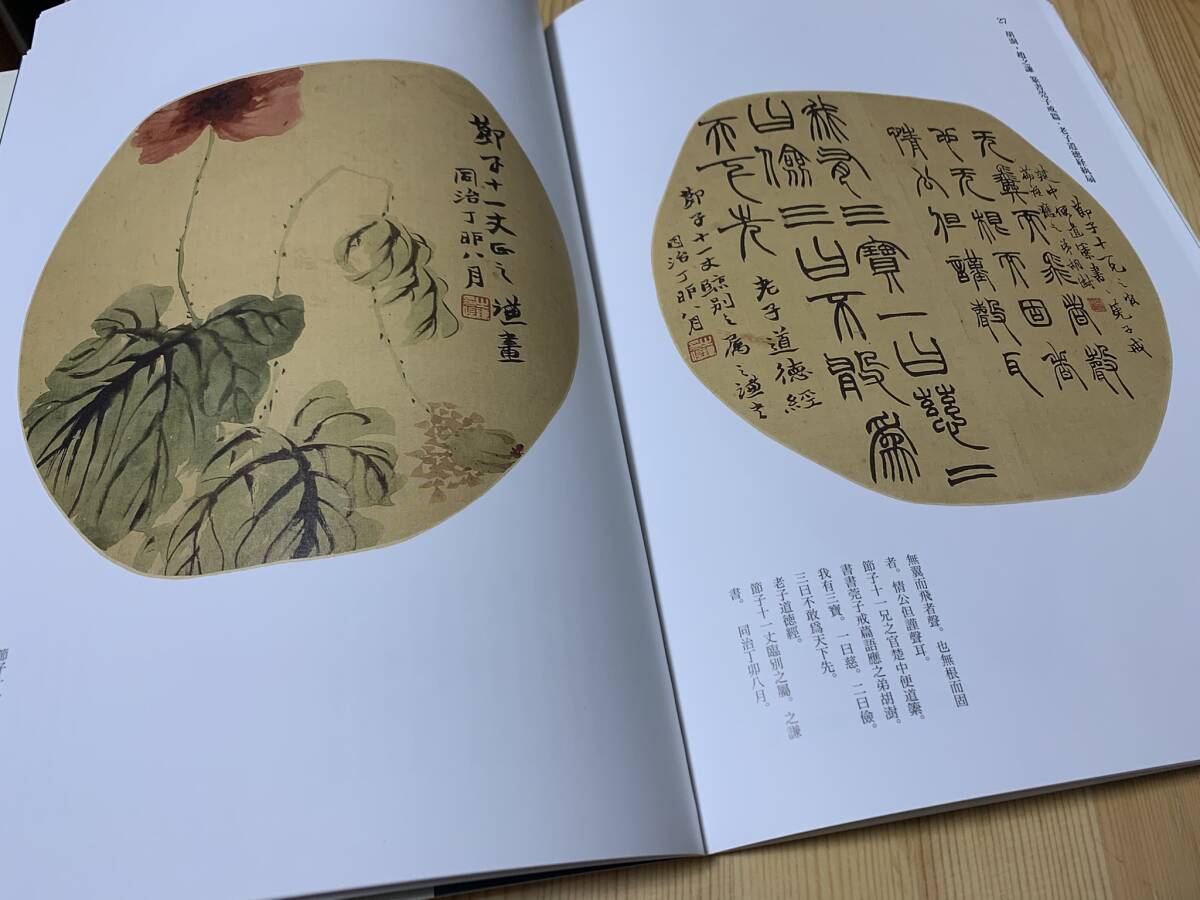 27 胡澍・趙之謙 篆書莞子戒篇・老子道徳経紈扇
无翼而飛者聲
也无根而固者
情公但謹聲耳
節子十一兄之官
楚中便道索書
篇語應之弟胡澍
我有三寶一曰慈二
曰儉三曰不敢爲
天下先 老子道德經
節子十一丈臨別之屬之謙書
同治丁卯八月
無翼而飛者聲。也無根而固
者。情公但謹聲耳。
節子十一兄之官楚中便道索
書書莞子戒篇語應之弟胡澍。
我有三寶。一曰慈。二曰儉。
三曰不敢爲天下先。
老子道德經。
節子十一丈臨別之屬。之謙
書。 同治丁卯八月。
節子十一丈正之謙畫
同治丁卯八月
節子